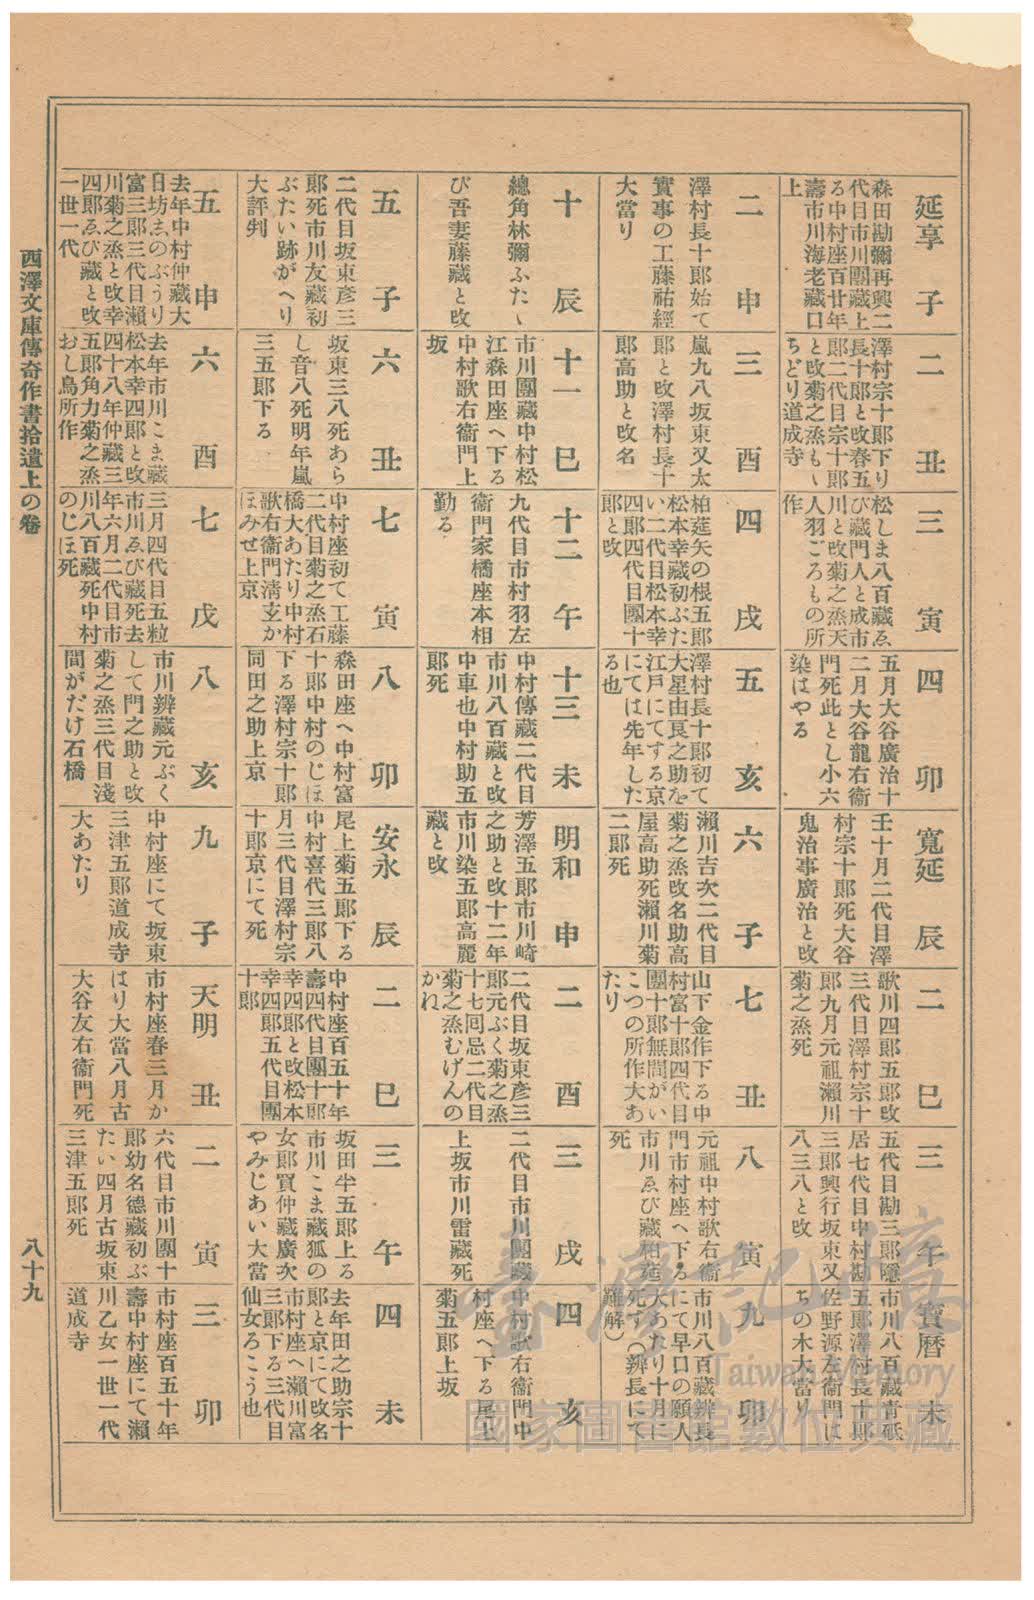 延享 子
森田勘彌再興二
代目市川團藏上
る中村座百廿年
壽市川海老藏口
上
二 丑
澤村宗十郎下り
長十郎と改春五
郎二代目宗十郎
と改菊之烝もゝ
ちどり道成寺
三 寅
松しま八百藏ゑ
び藏門人と成市
川と改菊之烝天
人羽ごろもの所
作
四 卯
五月大谷廣治十
二月大谷龍右衞
門死此とし小六
染はやる
寬延 辰
壬十月二代目澤
村宗十郎死大谷
鬼治事廣治と改
二 巳
歌川四郎五郎改
三代目澤村宗十
郎九月元祖瀨川
菊之烝死
三 午
五代目勘三郎隱
居七代目中村勘
三郎興行坂東又
八三八と改
寶曆 未
市川八百藏靑砥
五郎澤村長十郎
佐野源左衞門は
ちの木大當り
二 申
澤村長十郎始て
實事の工藤祐經
大當り
三 酉
嵐九八坂東又太
郎と改澤村長十
郎高助と改名
四 戌
柏莚矢の根五郎
松本幸藏初ぶた
い二代目松本幸
四郎四代目團十
郎と改
五 亥
澤村長十郎初て
大星由良之助を
江戶にてする京
にては先年した
る也
六 子
瀨川吉次二代目
菊之烝改名助高
屋高助死瀨川菊
二郎死
七 丑
山下金作下る中
村富十郎四代目
團十郎無間がい
こつの所作大あ
たり
八 寅
元祖中村歌右衞
門市村座へ下る
市川ゑび藏柏莚
死
九 卯
市川八百藏辨長
にて早口の願人
大あたり十月に
死す(辨長にて
難解)
十 辰
總角林彌ふたゝ
び吾妻藤藏と改
十一 巳
市川團藏中村松
江森田座へ下る
中村歌右衞門上
坂
十二 午
九代目市村羽左
衞門家橘座本相
勤る
十三 未
中村傳藏二代目
市川八百藏と改
中車也中村助五
郎死
明和 申
芳澤五郎市川崎
之助と改十二年
市川染五郎高麗
藏と改
二 酉
二代目坂東彥三
郎元ぶく菊之烝
十七囘忌二代目
菊之烝むげんの
かね
三 戌
二代目市川團藏
上坂市川雷藏死
四 亥
中村歌右衞門中
村座へ下る尾上
菊五郎上坂
五 子
二代目坂東彥三
郎死市川友藏初
ぶたい跡がへり
大評判
六 丑
坂東三八死あら
し音八死明年嵐
三五郎下る
七 寅
中村座初て工藤
二代目菊之烝石
橋大あたり中村
歌右衞門淸玄か
ほみせ上京
八 卯
森田座へ中村富
十郎中村のじほ
下る澤村宗十郎
同田之助上京
安永 辰
尾上菊五郎下る
中村喜代三郎八
月三代目澤村宗
十郎京にて死
二 巳
中村座百五十年
壽四代目團十郎
幸四郎と改松本
幸四郎五代目團
十郎
三 午
坂田半五郎上る
市川こま藏狐の
女郎買仲藏廣次
やみじあい大當
四 未
去年田之助宗十
郎と京にて改名
市村座へ瀨川富
三郎下る三代目
仙女ろこう也
五 申
去年中村仲藏大
日坊ゑのぶうり
富三郎三代目瀨
川菊之烝と改幸
四郎ゑび藏と改
一世一代
六 酉
去年市川こま藏
松本幸四郎と改
四十八年仲藏三
五郎角力菊之烝
おし鳥所作
七 戌
三月四代目五粒
市川ゑび藏死去
年六月二代目市
川八百藏死中村
のじほ死
八 亥
市川辨藏元ぶく
して門之助と改
菊之烝三代目淺
間がだけ石橋
九 子
中村座にて坂東
三津五郎道成寺
大あたり
天明 丑
市村座春三月か
はり大當八月古
大谷友右衞門死
二 寅
六代目市川團十
郎幼名德藏初ぶ
たい四月古坂東
三津五郎死
三 卯
市村座百五十年
壽中村座にて瀨
川乙女一世一代
道成寺
西澤文庫傳奇作書拾遺上の卷
八十九
臺灣記憶
Taiwan Memory
國家圖書館數位典藏